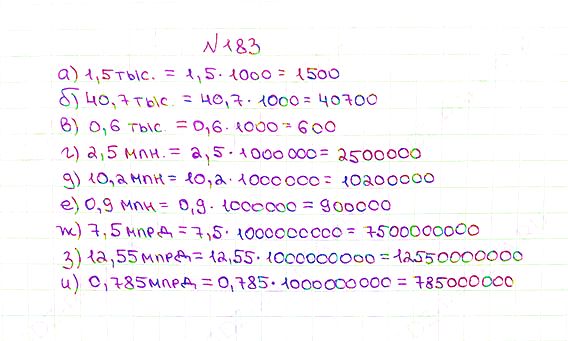 №183
а) 1,5 тыс. = 1,5·1000 = 1500
б) 40,7 тыс. = 40,7·1000 = 40700
в) 0,6 тыс. = 0,6·1000 = 600
г) 2,5 млн. = 2,5·1000000 = 2500000
д) 10,2 млн = 10,2·1000000 = 10200000
е) 0,9 млн = 0,9·1000000 = 900000
ж) 7,5 млрд = 7,5·1000000000 = 7500000000
з) 12,55 млрд = 12,55·1000000000 = 12550000000
и) 0,785 млрд = 0,785·1000000000 = 785000000